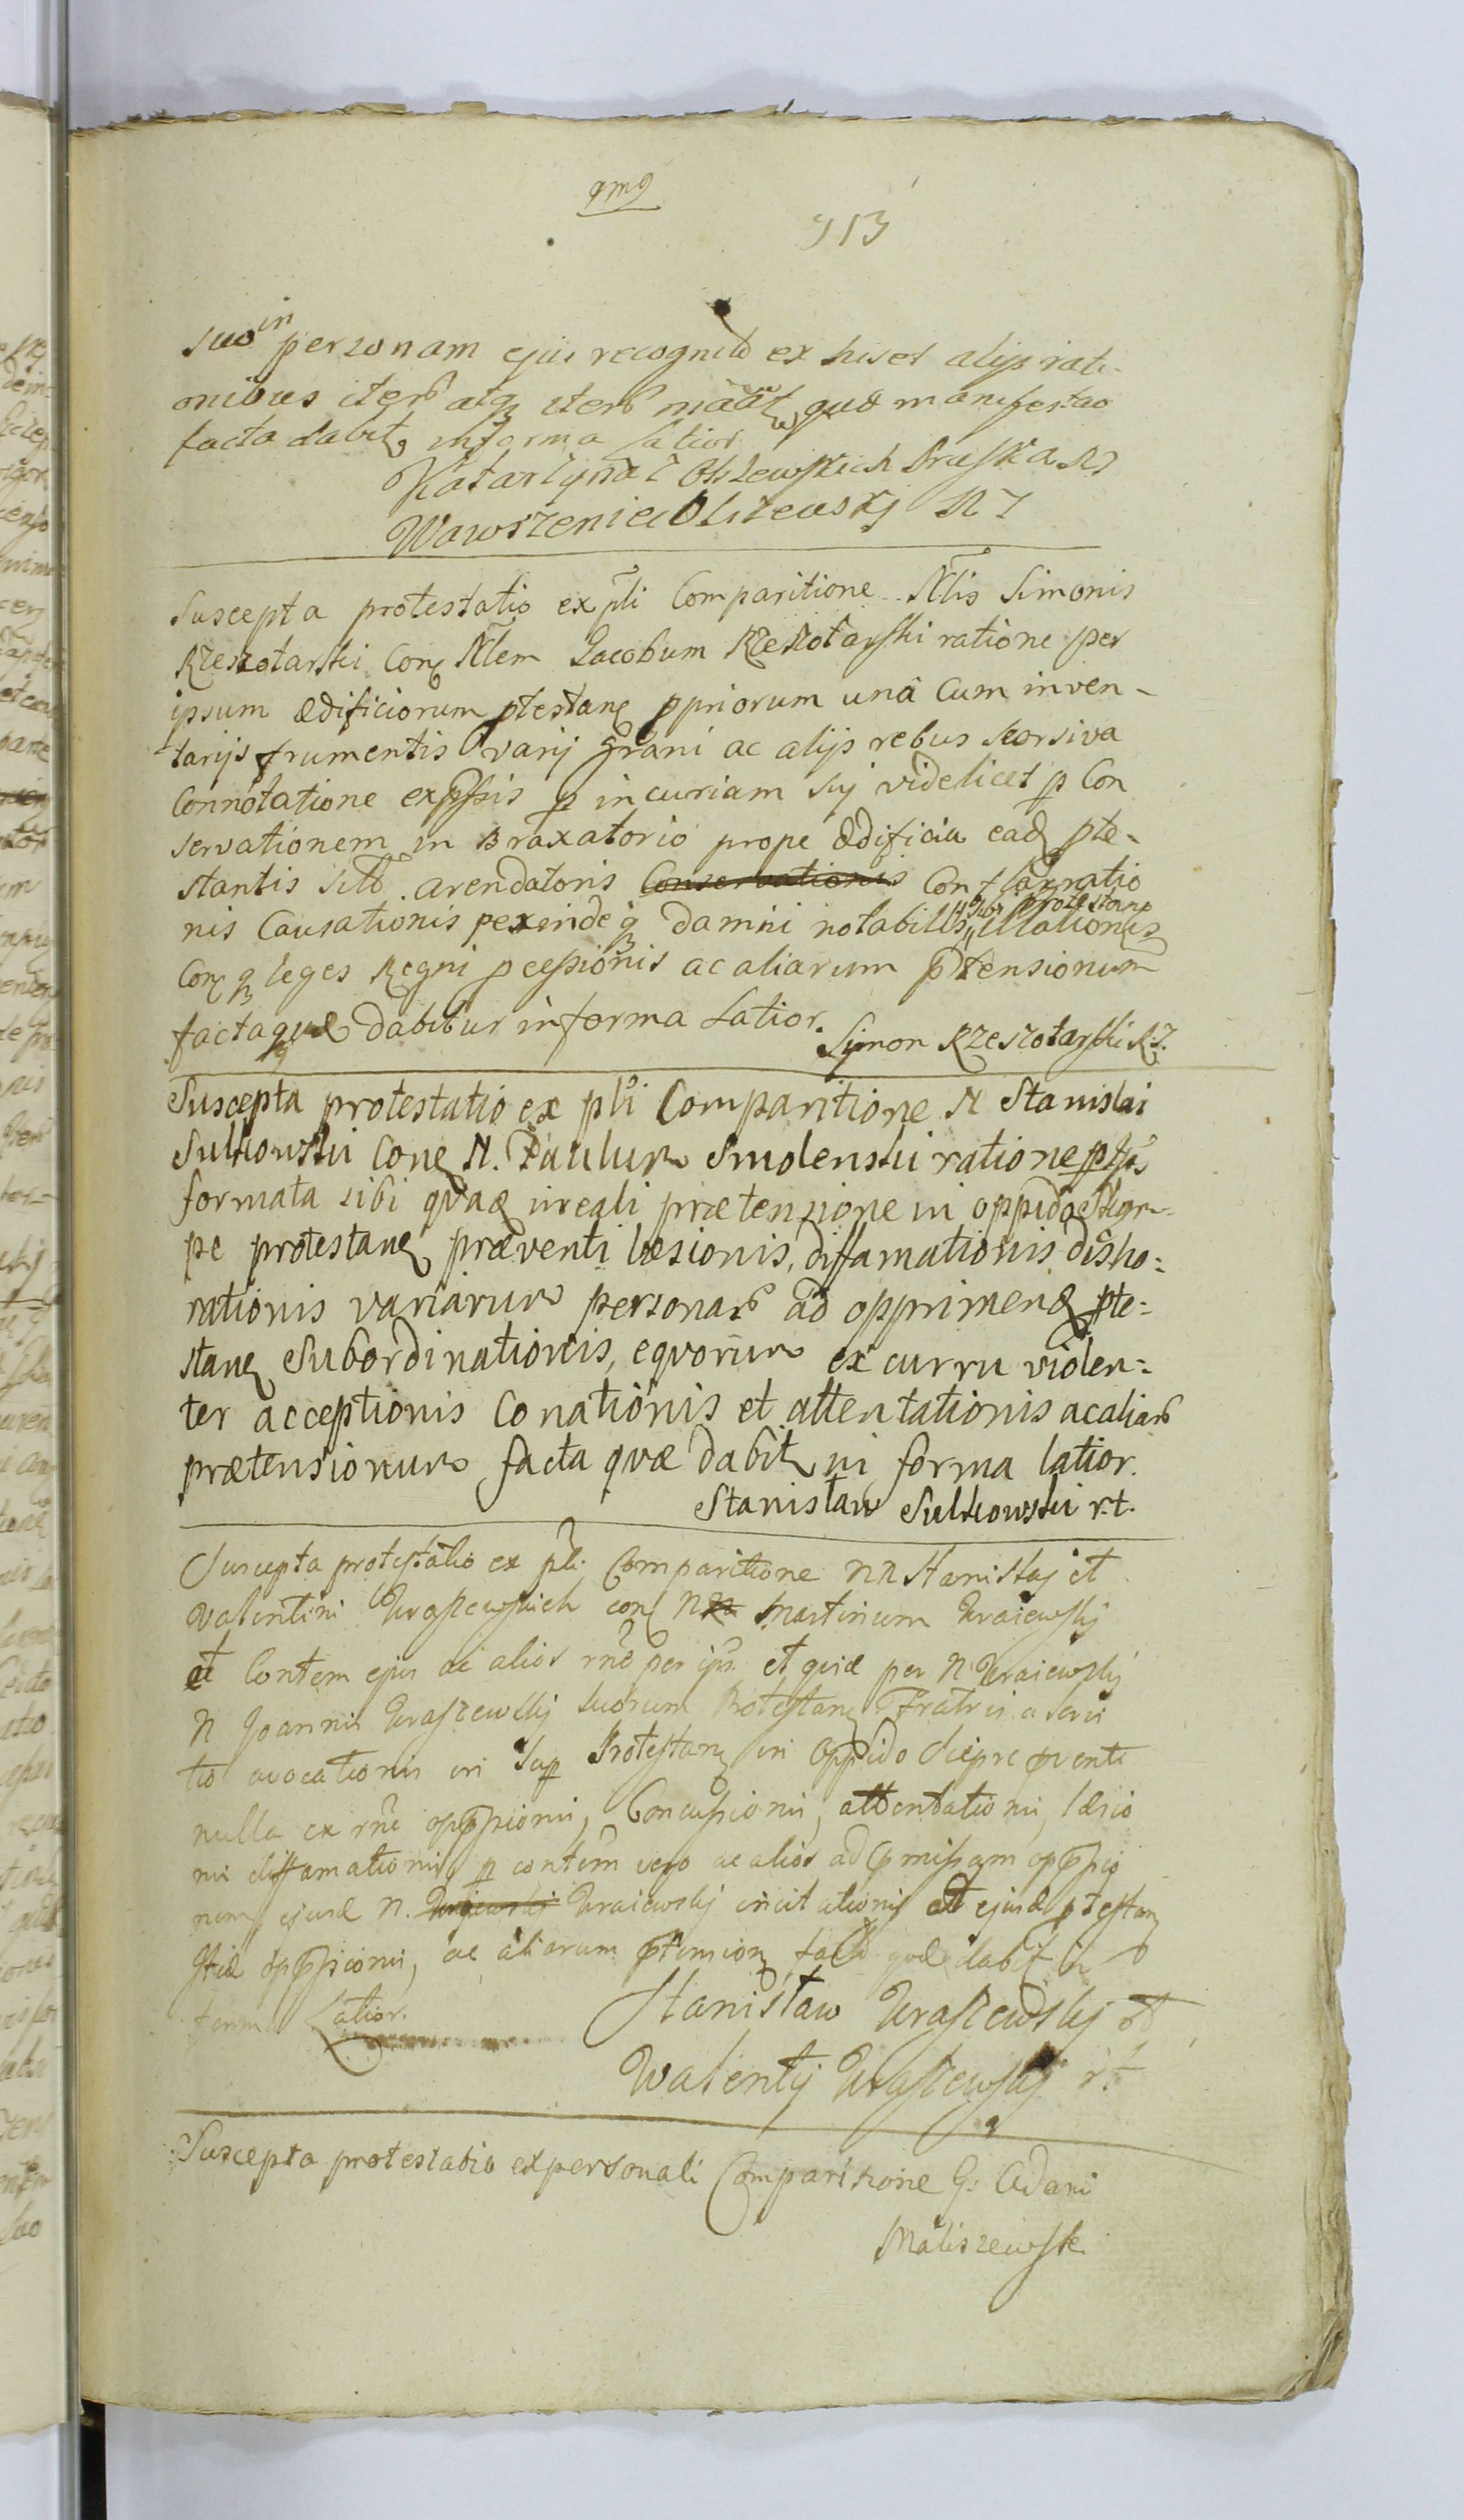 913
suo in personam ejus recognito ex his et alijs rati-
onibus iter atq iter quae manifestao
facta dabit in forma latior
Katarzyna z Olszewskich Pruska RT
Wawrzeniec Olszewsky RT
Suscepta protestatio ex pli Comparitione Nlis Simonis
Rzeszotarski Con Nlem Jacobum Rzeszotarski ratione per
ipsum ædificiorum ptestan ppriorum unâ Cum inven-
tarijs frumentis varij grani ac alijs rebus seorsiva
Connotatione expssis p incuriam sij videlicet p Con
servationem in Braxatorio prope ædificia ead pte-
stantis arendatoris Conservationis Conflagratio
nis Causationis perindeq damni notabilis illationis
Con q leges Regni pcessionis ac aliarum ptensionum
facta quæ dabitur in forma Latior.
Symon Rzeszotarski RT.
Suscepta protestatio ex pli Comparitione N Stanislai
Sulkowski Con N. Paulum Smolenski ratione
formata sibi quad irreali prætensione in oppido
pc protestan præventi læsionis, diffamationis disho:
rationis variarum personar ad opprimend pte:
stan Subordinationis, equorum ex curru violen:
ter acceptionis Conationis et attentationis ac aliar
prætensionum facta quæ dabit in forma latior.
Stanisław Sulkowski r.t.
Suscepta protestatio ex pli Comparitione NN Stanislaj et
Valentini Kraszewskich con N Martinum Kraiewskj
et Contem ejus ac alios rne per ips et quid per N Kraiewskj
N Joannis Kraszewskj suorum Protestan Fratris a servi
tio avocationis in Sup Protestan in Oppido præventi
nulla ex rne oppssionis, Concussionis, attentationis, læsio
nis diffamationis p contem vero ac alios ad pmissam oppssio
nem ejusd N. Kraiewskj Kraiewskj incitationis et ejusd ptestan
oppssionis, ac aliarum ptension facta quæ dabit in
form Latior.
Stanisław Kraszewskj rt
Walenty Kraszewskj rt
Suscepta protestatio ex personali Comparitione G: Adami
Maliszewski